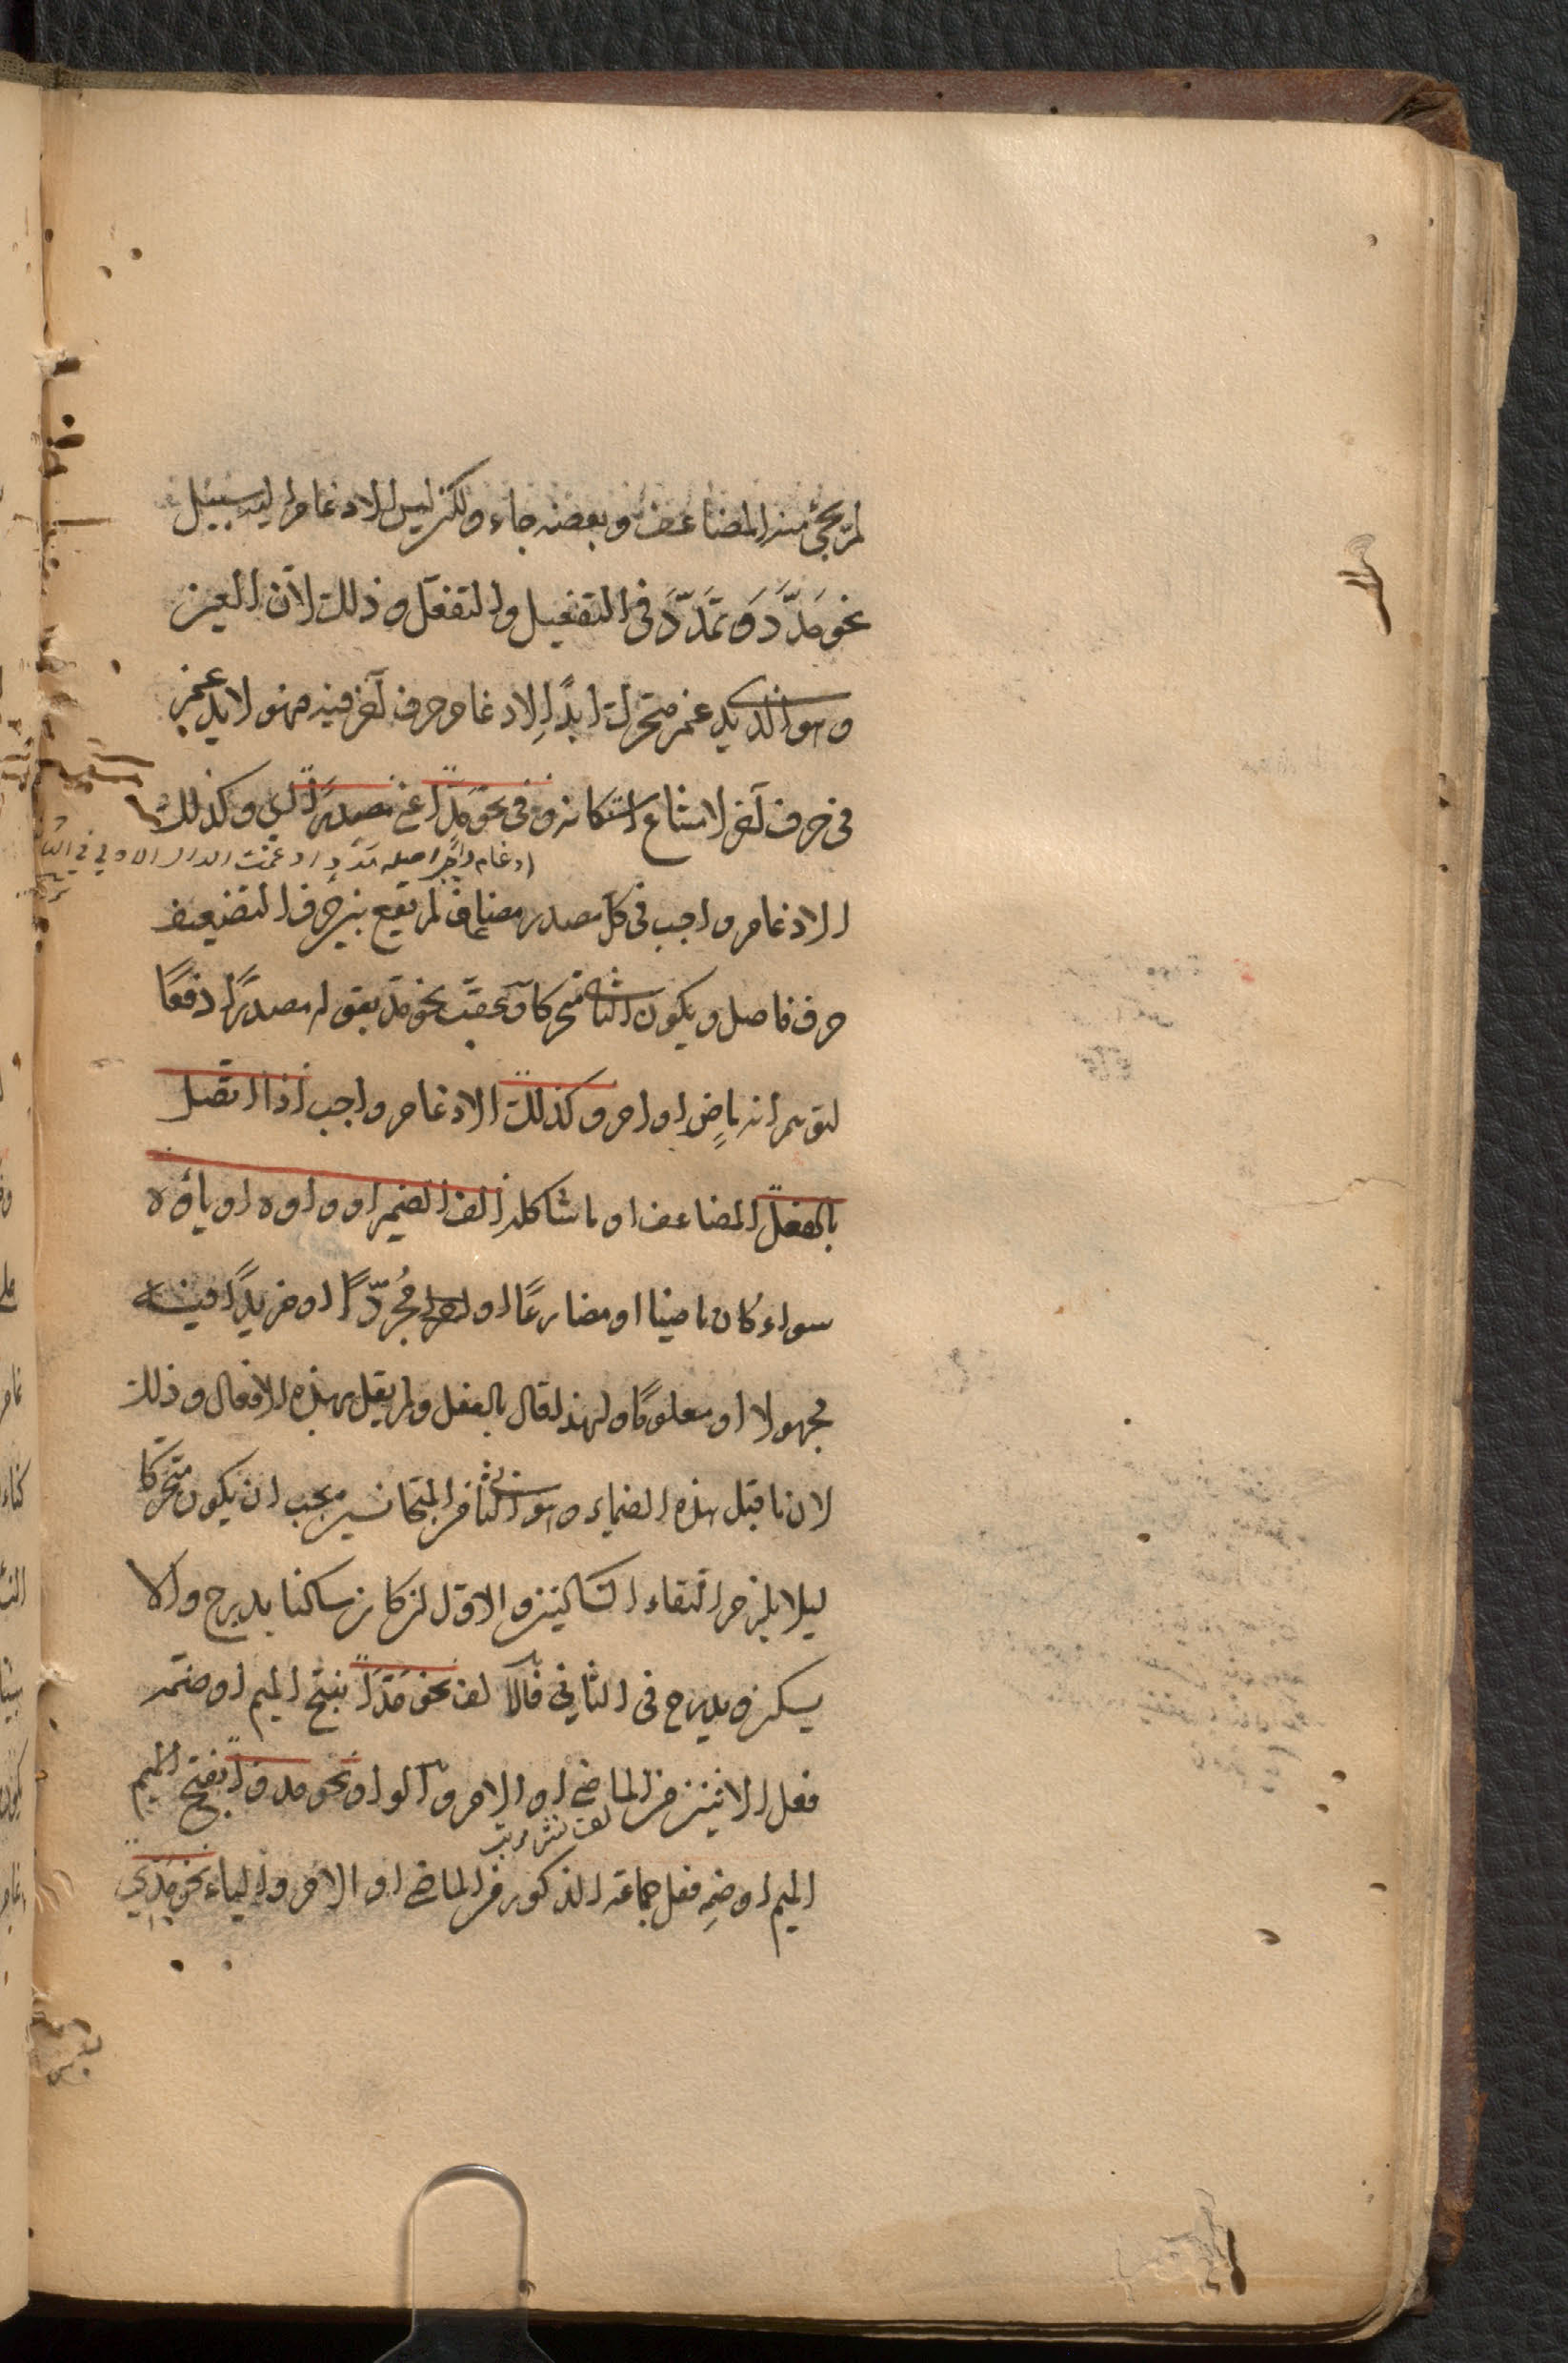 لم يجئ منه المضاعف وبعضه جاء ولكن ليس للادغام اليه سبيل
نحو مَدَّدَ وَتَمَدَّدَ في التفعيل والتفعّل وذلك لانّ العين
وهو الذي يدغم متحرك ابدًا لادغام حرف آخر فيه فهو لا يدغم
في حرف آخر لامتناع اسكانه وفي نحو مَدًّا اعني مصدرًا اي وكذلك
ادغام واجب اصله مَدَدٌ ادغمت الدال الاولى في الثا
الادغام واجب في كل مصدر مضاعف لم يقع بين حرفي التضعيف
حرف فاصل ويكون الثاني متحركا وعقّب نحو مدّ بقوله مصدرًا دفعًا
لتوهم انه ماضٍ او امر وكذلك الادغام واجب اذا اتصل
بالفعل المضاعف او ما شاكله الف الضمير او واوه او ياؤه
سواء كان ماضيا او مضارعًا او امرا مُجرّدًا او مزيدًا فيه
مجهولا او معلومًا ولهذا قال بالفعل ولم يقل بهذه الافعال وذلك
لان ما قبل هذه الضماير وهو الثاني من المتجانسين يجب ان يكون متحركًا
ليلا يلزم التقاء الساكنين والاول ان كان ساكنا يدرج والا
يسكن ويدرج في الثاني فالالف نحو مَدَّا بفتح الميم او ضمّه
فعل الاثنين من الماضي او الامر والواو نحو مدوا بفتح الميم
لف نشر مرتب
الميم او ضمه فعل جماعة الذكور من الماضي او الامر والياء نحو مُدّي